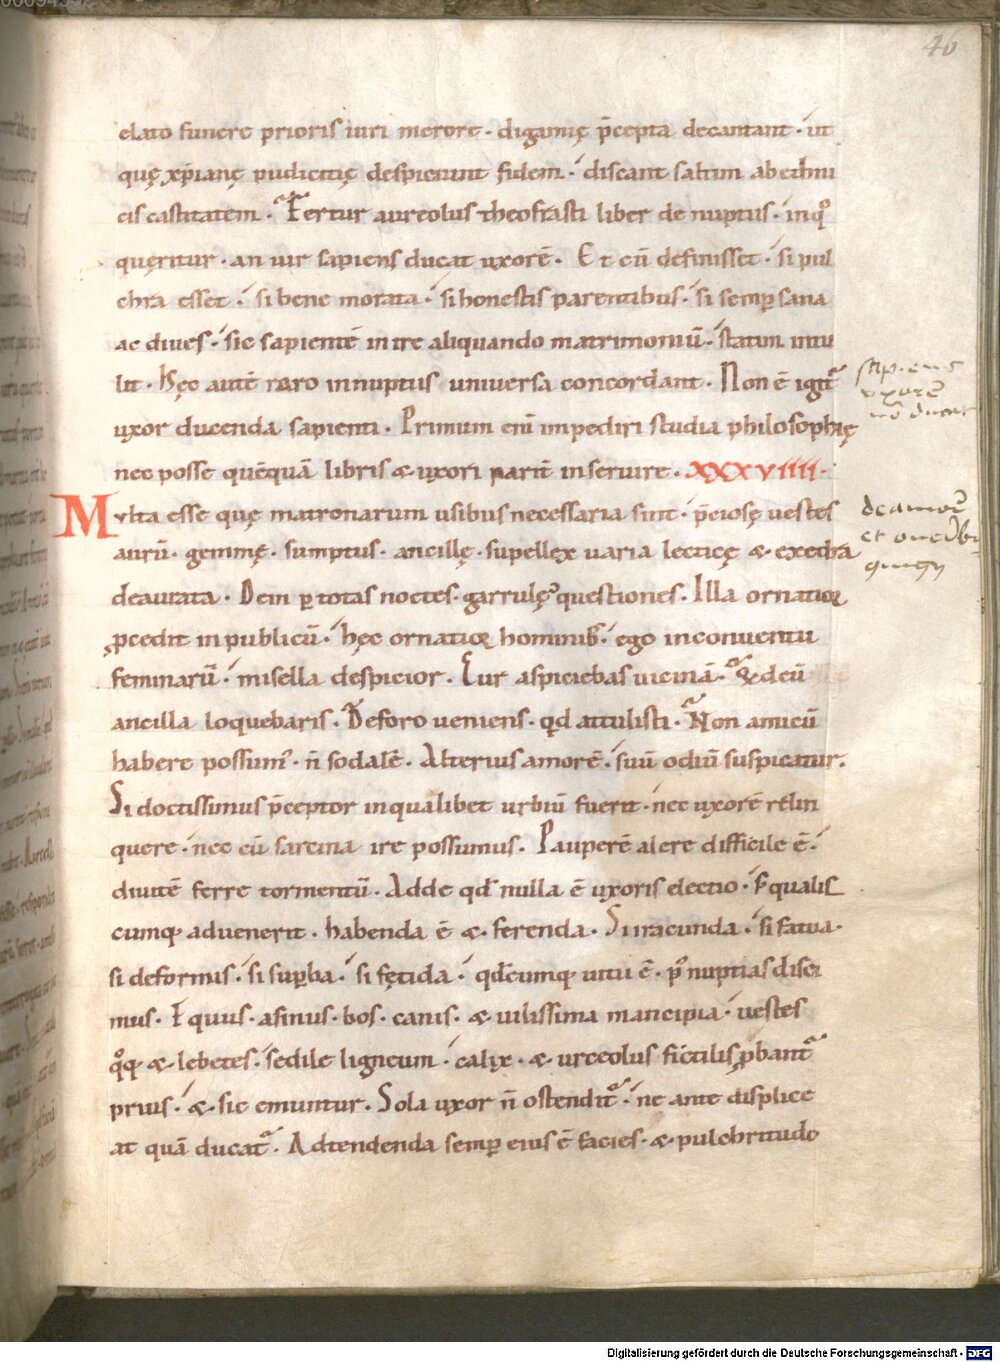 46
elato funere prioris iuri merore · digamię p̄cepta decantant · ut
quę xp̄ianę pudicitię despiciunt fidem · discant saltim ab ethni
cis castitatem · Fertur aureolus theofrasti liber de nuptiis · in qͦ
quęritur · an uir sapiens ducat uxorē · Et cū definisset · si pul
chra esset · si bene morata · si honestis parentibus · si semꝑ sana
ac diues · sic sapientē inire aliquando matrimoniū · statim intu
lit · Hęc autē raro in nuptiis uniuersa concordant · Non ē igit᷑
uxor ducenda sapienti · Primum eni͂ impediri studia philosophię
nec posse quēquā libris & uxori parit̄ inseruire · XXXVIIII ·
Mvlta esse quę matronarum usibus necessaria sint · p̄ciosę uestes
aurū · gemmę · sumptus · ancillę · supellex uaria lecticę & exedra
deaurata · Dein ꝑ totas noctes · garrulę questiones · Illa ornatior
ꝓcedit in publicū · hęc ornatior hominibꝫ · ego in conuentu
feminarū · misella despicior · Cur aspiciebas uicinā · Qͥd cū
ancilla loquebaris · De foro ueniens · qͥd attulisti · Non amicū
habere possumꝰ · n̄ sodalē · Alterius amorē · suū odiū suspicatur ·
Si doctissimus p̄ceptor in qualibet urbiū fuerit · nec uxorē relin
quere · nec cū sarcina ire possumus · Pauperē alere difficile ē ·
diuitē ferre tormentū · Adde qd̄ nulla ē uxoris electio · s; qualis
cumqꝫ aduenerit · habenda ē & ferenda · Si iracunda · si fatua ·
si deformis · si suꝑba · si fętida · qd̄cumqꝫ uitii ē · p̄ nuptias disci
mus · Equus · asinus · bos · canis · & uilissima mancipia · uestes
qͦqꝫ & lebetes · sedile ligneum · calix · & urceolus fictilis ꝓbant᷑
prius · & sic emuntur · Sola uxor n̄ ostendit᷑ · ne ante displice
at quā ducat᷑ · Adtendenda semꝑ eius ē facies · & pulchritudo
sapiens
uxorē
nō ducat
Digitalisierung gefördert durch die Deutsche Forschungsgemeinschaft - DFG